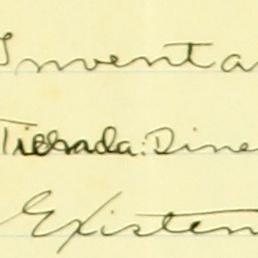 Inventa
Tienda: Dine
Existen